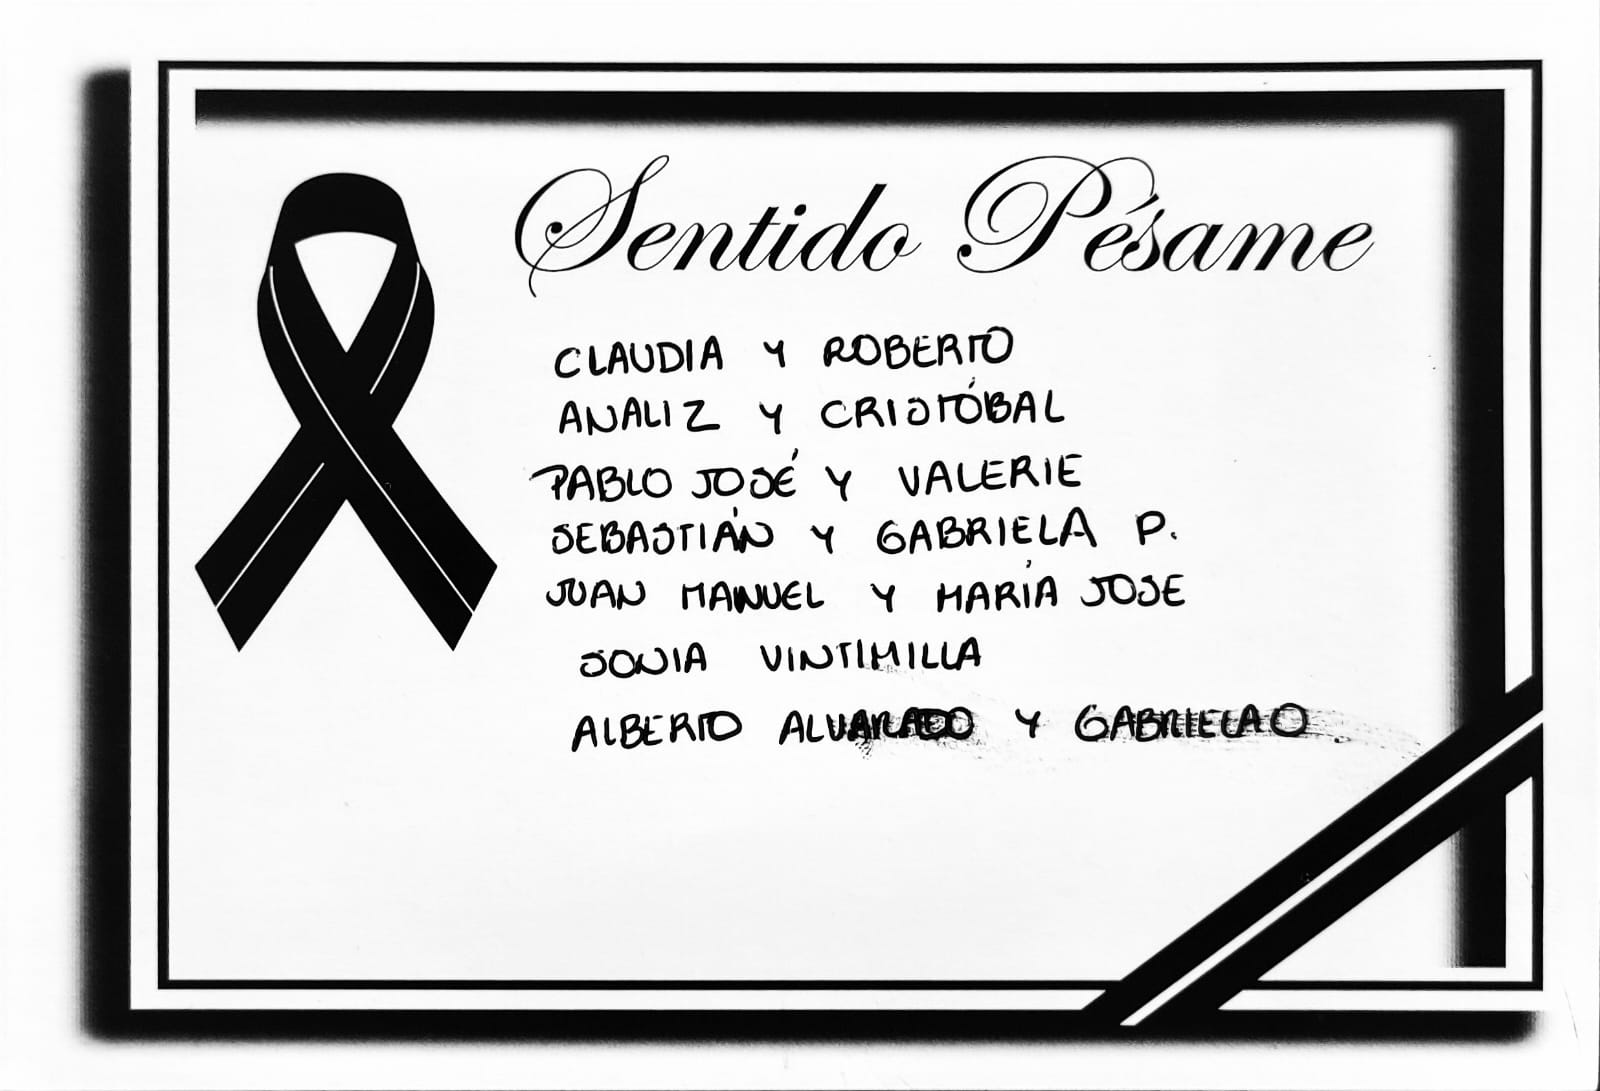 Sentido Pésame
CLAUDIA Y ROBERTO
ANALIZ Y CRISTÓBAL
PABLO JOSÉ Y VALERIE
SEBASTIÁN Y GABRIELA P.
JUAN MANUEL Y MARÍA JOSE
SONIA VINTIMILLA
ALBERTO ALVARADO Y GABRIELA O.